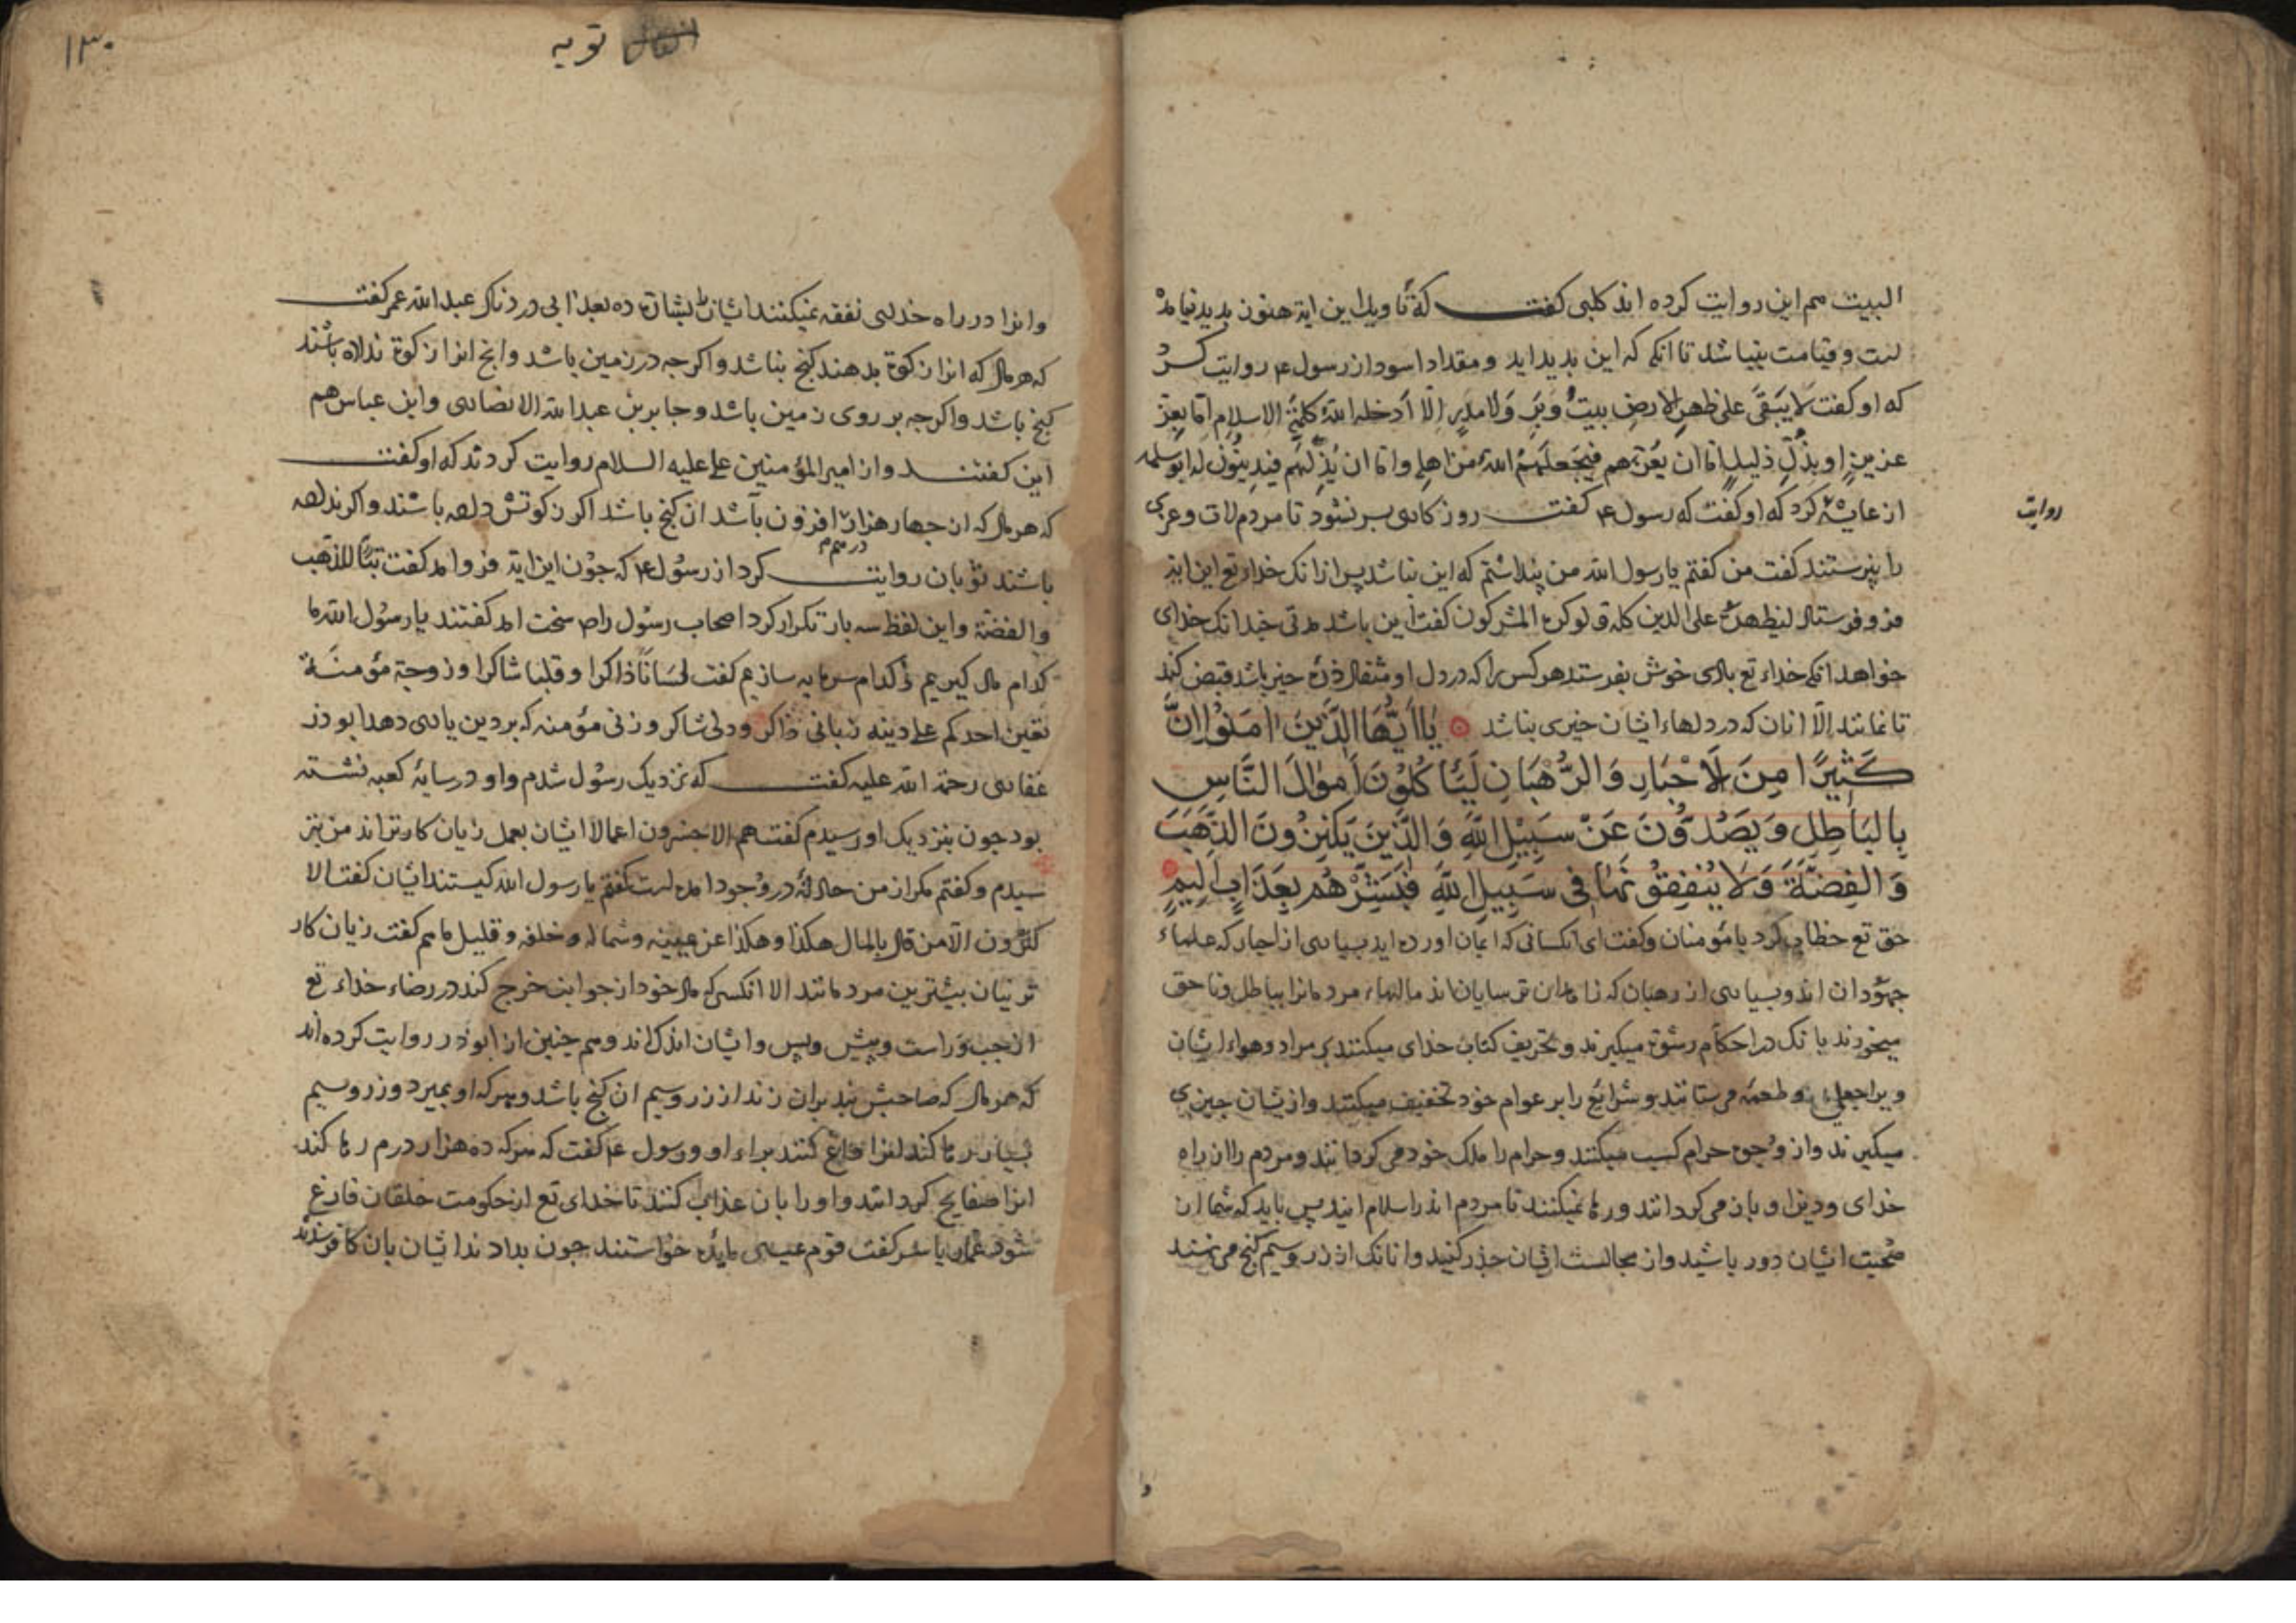 البیت هم این روایت کرده اند کلبی کفت که تاویل این ایة هنوز بدید نیامذ
لست و قیامت بنباشد تا انکه که این بدید اید و مقداد اسود از رسول ع روایت کرد
که او کفت لا یَبقَی علی ظهر الارض بیتُ وَبَرٍ وَلا مدرٍ اِلّا اَدخله اللهُ کلمةَ الاسلام امّا بعِزّ
عزیزٍ او بذُلّ ذلیلٍ امّا ان یُعزّهم فیَجعلَهُم اللهُ من اهله وامّا ان یُذِلّهُم فیدینُون له ابو سلمه
از عایشه کرد که او کفت که رسول ع کفت روزکاری بسر نشود تا مردم لات و عزی
روایت
را بپرستند کفت من کفتم یا رسول الله من پنداشتم که این نباشد پس ازانک خداء تع این ایة
فرو فرستاد لیظهره علی الدین کله و لو کره المشرکون کفت این باشد مدتی چندانک خدای
خواهد انکه خداء تع بادی خوش بفرستد هر کس را که در دل او مثقال ذرهٔ خیر باشد قبض کند
تا نمانند اِلّا انان که در دلهاء ایشان خیری نباشد یٰا اَیُّهَا الَّذینَ اٰمَنُوْا اِنَّ
کَثِیرًا مِنَ لَاحْبَارِ وَالرُّهْبَانِ لَیَاکُلُوْنَ اَمْوٰالَ النَّاسِ
بِالبَاطِلِ وَیَصُدُّوْنَ عَنْ سَبِیْلِ اللّٰهِ وَالَّذِینَ یَکْنِزُوْنَ الذَّهَبَ
وَالفِضَّةَ وَلَا یُنْفِقُوْنَهَا فِی سَبِیلِ اللّٰهِ فَبَشِّرْهُم بِعَذَابٍ اَلِیمٍ
حق تع خطاب کرد با مؤمنان و کفت ای انکسانی که ایمان اورده اید بسیاری از احبار که علماء
جهودان اند و بسیاری از رهبان که زاهدان ترسایان اند مالهاء مردمانرا بباطل و ناحق
میخورند بانک در احکام رشوة میکیرند و تحریف کتاب خدای میکنند بر مراد و هواء ایشان
و براجعل و طعمه می ستانند و شرایع را بر عوام خود تخفیف میکنند و ازیشان چیزی
میکیرند و از وجوه حرام کسب میکنند و حرام را ملک خود می کردانند و مردم را از راه
خدای و دین او بازمی کردانند و رها نمیکنند تا مردم اندر اسلام ایند پس باید که شما از
صُحبت ایشان دور باشید و از مجالست ایشان حذر کنید و انانک از زر و سیم کنج می نهند
۱۳۰
انفال توبه
وانرا در راه خدای نفقه نمیکنند ایشان را بشارت ده بعذابی دردناک عبدالله عمر کفت
که هر مال که انرا زکوة بدهند کنج نباشد و اکرجه در زمین باشد و انج انرا زکوة نداده باشند
کنج باشد و اکرجه بر روی زمین باشد و جابر بن عبدالله الانصاری و ابن عباس هم
این کفتند و از امیر المؤمنین علی علیه السلام روایت کردند که او کفت
که هر مال که از جهار هزار درهم افزون باشد ان کنج باشد اکر زکوتش داده باشند و اکر نداده
باشند ثوبان روایت کرد از رسُول ع که جوُن این ایة فروامد کفت تبًّا للذهب
والفضة و این لفظ سه بار تکرار کرد اصحاب رسُول را ص سخت امد کفتند یا رسُول الله ما
کدام مال کیریم و کدام سرمایه سازیم کفت لِسَانًا ذاکرا و قلبا شاکرا و زوجة مؤمنَةً
تعین احدکم علی دینه زبانی ذاکر و دلی شاکر و زنی مؤمنه که بر دین یاری دهد ابو ذر
غفاری رحمة الله علیه کفت که نزدیک رسُول شدم و او در سایهٔ کعبه نشسته
بود جون بنزدیک او رسیدم کفت هم الاخسرون اعمالا ایشان بعمل زیان کارتراند من بتر
سیدم و کفتم مکر از من حادثهٔ در وجود امده است کفتم یا رسول الله کیستند ایشان کفت الا
کثرون الّا من قال بالمال هکذا و هکذا عن یمینه و شماله و خلفه و قلیل ما هم کفت زیان کار
ترینان بیشترین مردمانند الا انکسی که مال خود از جوانب خرج کند در رضاء خداء تع
از جب و راست و پیش و پس و ایشان اندک اند و هم جنین از ابو ذر روایت کرده اند
که هر مال که صاحبش بند بران زند از زر و سیم ان کنج باشد و هرکه او بمیرد و زر و سیم
بسیار رها کند انرا داغ کنند براء او و رسول ع کفت که هرکه ده هزار درم رها کند
انرا صفایح کردانند و اورا بان عذاب کنند تا خدای تع از حکومت خلقان فارغ
شود عمار یاسر کفت قوم عیسی مایده خواستند جون بدادند ایشان بان کافر شدند